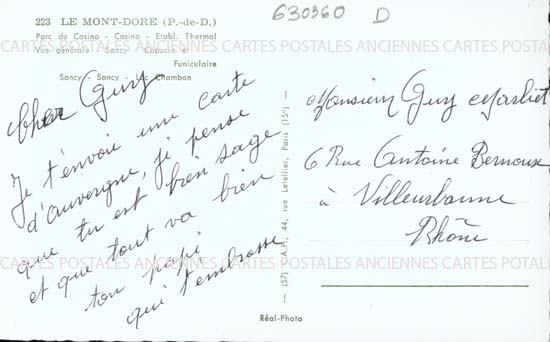 630360 D
223 LE MONT-DORE (P.-de-D.)
Parc du Casino - Casino - Etabl. Thermal
Vue générale - Sancy - Capucin et
Funiculaire
Sancy - Sancy - Lac Chambon
CARTES POSTALES ANCIENNES CARTES POSTALES ANCIENNES CARTES POSTALES
Cher Guy
Je t'envoie une carte
d'auvergne, je pense
que tu est bien sage
et que tout va bien
ton papi
qui t'embrasse
(57) A.P., 44, rue Letellier, Paris (15e)
Monsieur Guy
6 Rue Antoine
à Villeurbanne
Rhône
CARTES POSTALES ANCIENNES CARTES POSTALES ANCIENNES CARTES POTALES
Réal-Photo